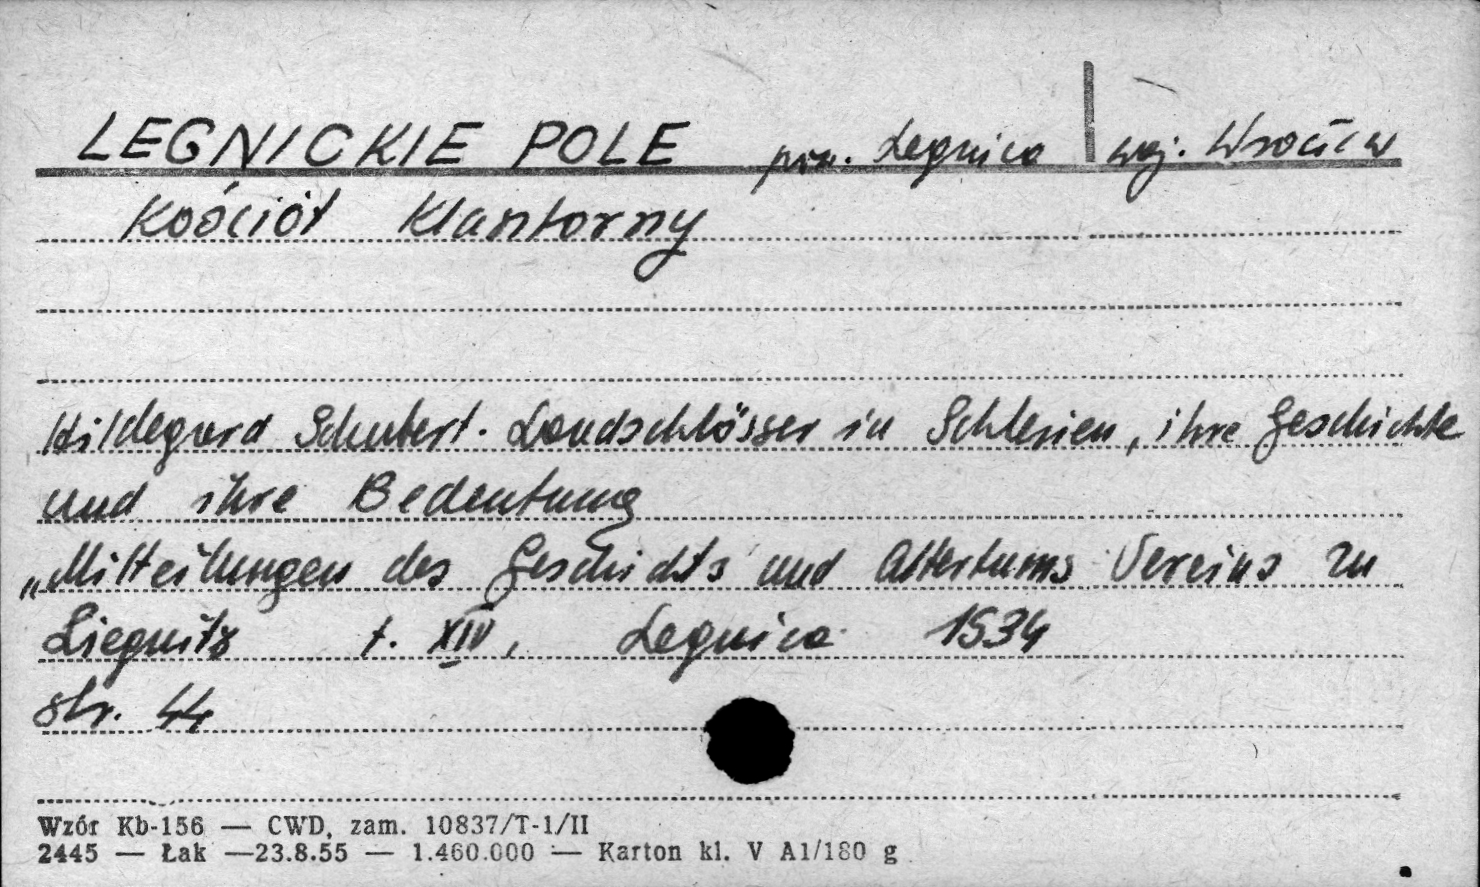 LEGNICKIE POLE pow. Legnica woj. Wrocław
Kościół Klasztorny
Hildegard Schubert. Landschlösser in Schlesien, ihre Geschichte
und ihre Bedeutung
„Mitteilungen des Geschichts und Altertums Vereins zu
Liegnitz t. XIV, Legnica 1934
str. 44
Wzór Kb-156 — CWD, zam. 10837/T-1/II
2445 — Łak —23.8.55 — 1.460.000 — Karton kl. V A1/180 g